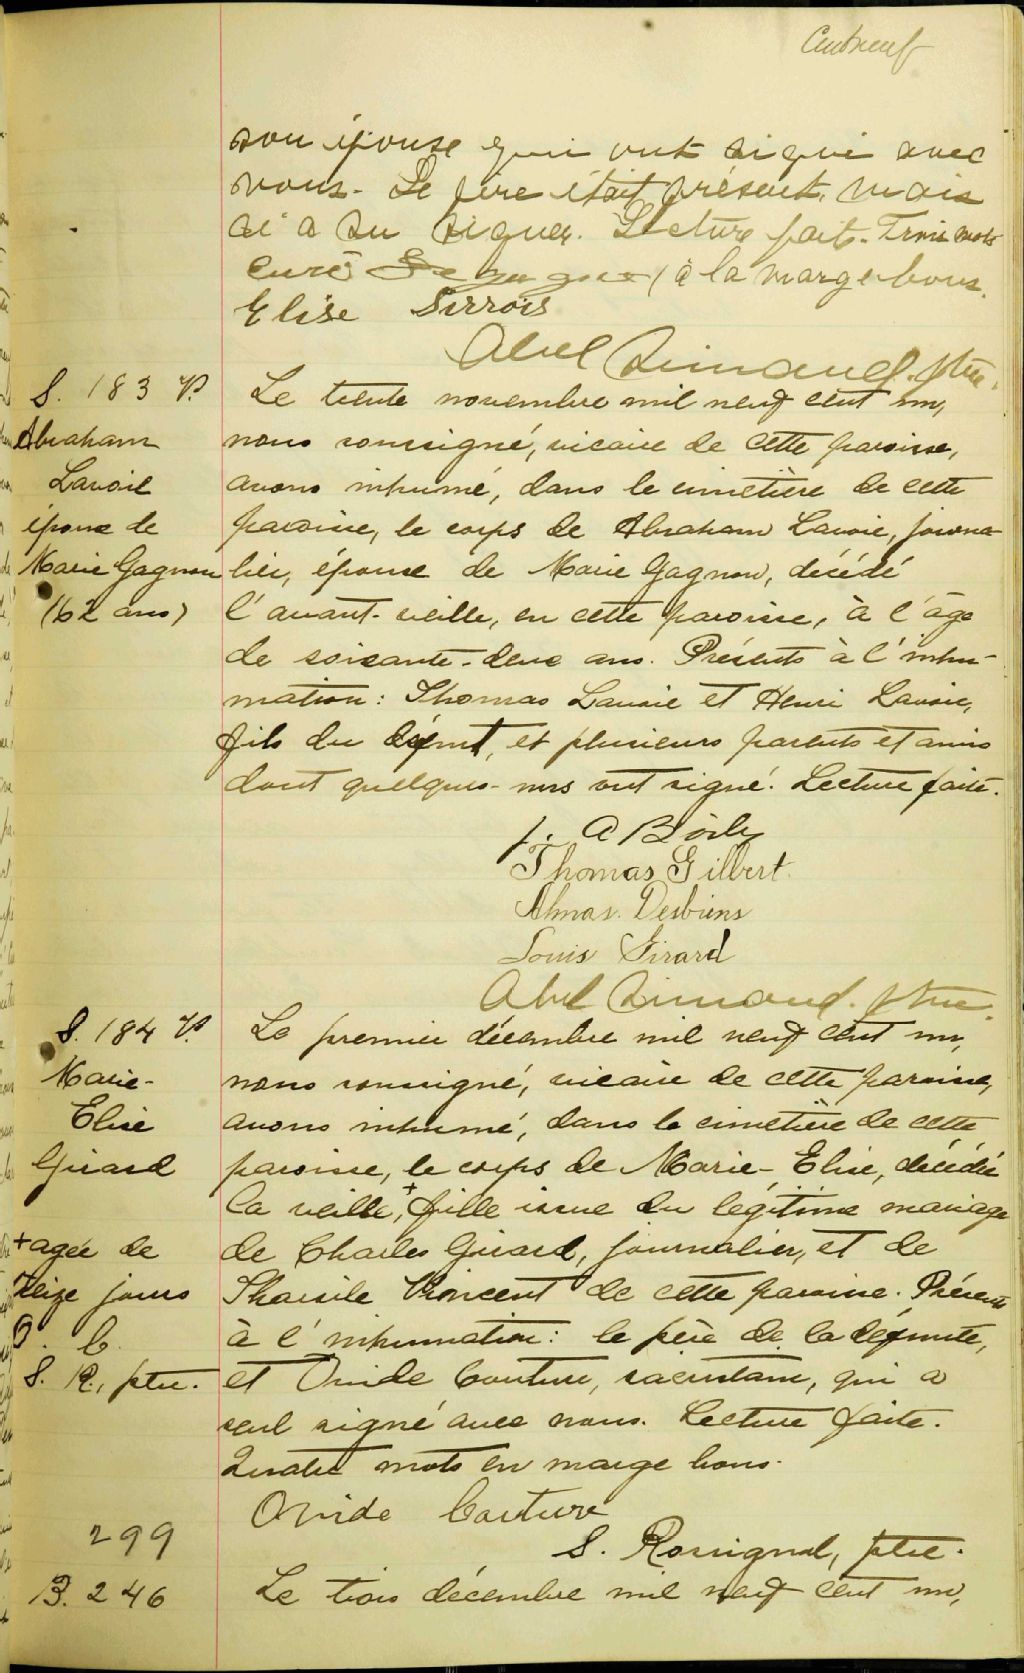 Centneuf
son épouse qui ont signé avec
nous. Le père était présent, mais
n'a su signer. Lecture faite. Trois mots
curé à la marge bons.
Elise Sirrois
Abel Simard, ptre.
S. 183 P.
Abraham
Lavoie
époux de
Marie Gagnon
(62 ans)
Le trente novembre mil neuf cent un,
nous soussigné, vicaire de cette paroisse,
avons inhumé, dans le cimetière de cette
paroisse, le corps de Abraham Lavoie, journa-
lier, époux de Marie Gagnon, décédé
l'avant-veille, en cette paroisse, à l'âge
de soixante-deux ans. Présents à l'inhu-
mation: Thomas Lavoie et Henri Lavoie,
fils du défunt, et plusieurs parents et amis
dont quelques-uns ont signé. Lecture faite.
J. A Boily
Thomas Gilbert.
Almas. Desbiens
Louis Girard
Abel Simard, ptre.
S. 184 P.
Marie-
Elise
Girard
+ agée de
seize jours
O. C.
S. R., ptre.
Le premier décembre mil neuf cent un,
nous soussigné, vicaire de cette paroisse,
avons inhumé, dans le cimetière de cette
paroisse, le corps de Marie-Elise, décédée
la veille, + fille issue du légitime mariage
de Charles Girard, journalier, et de
Tharsile Vincent de cette paroisse. Présents
à l'inhumation: le père de la défunte,
et Ovide Couture, sacristain, qui a
seul signé avec nous. Lecture faite.
Quatre mots en marge bons.
Ovide Couture
S. Rossignol, ptre.
299
B. 246
Le trois décembre mil neuf cent un,